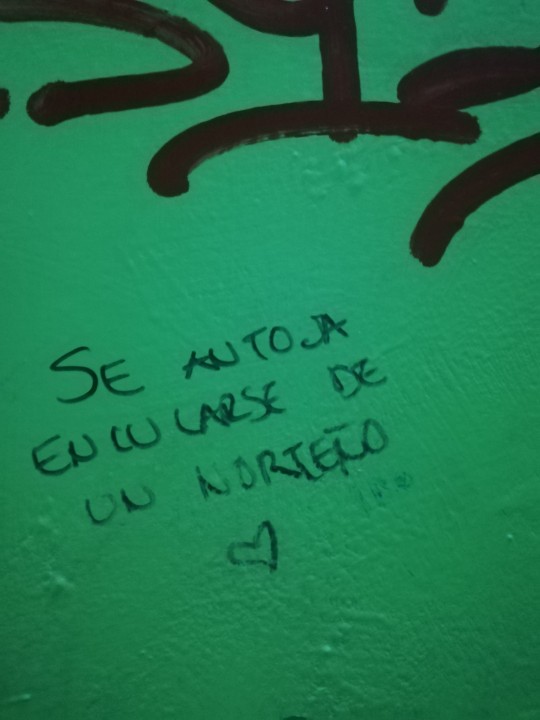 SE ANTOJA
ENCULARSE DE
UN NORTEÑO